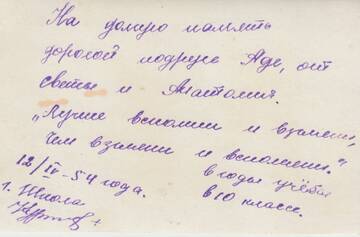 На добрую память
дорогой подруге Аде, от
Светы и Анатолия.
"Лучше вспомни и взгляни,
Чем взгляни и вспомни."
12/IV-54 года.
в годы учёбы
в 10 классе.
г. Школа